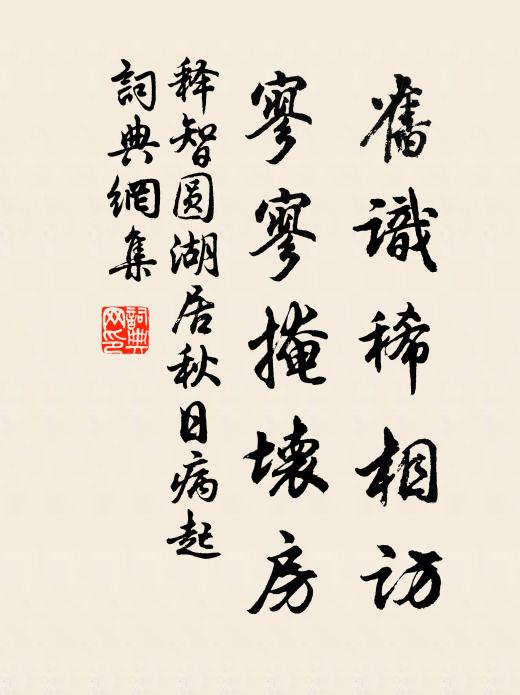 舊識稀相訪
寥寥掩壞房
释智圆湖居秋日病起
詞典網集
詞典网印